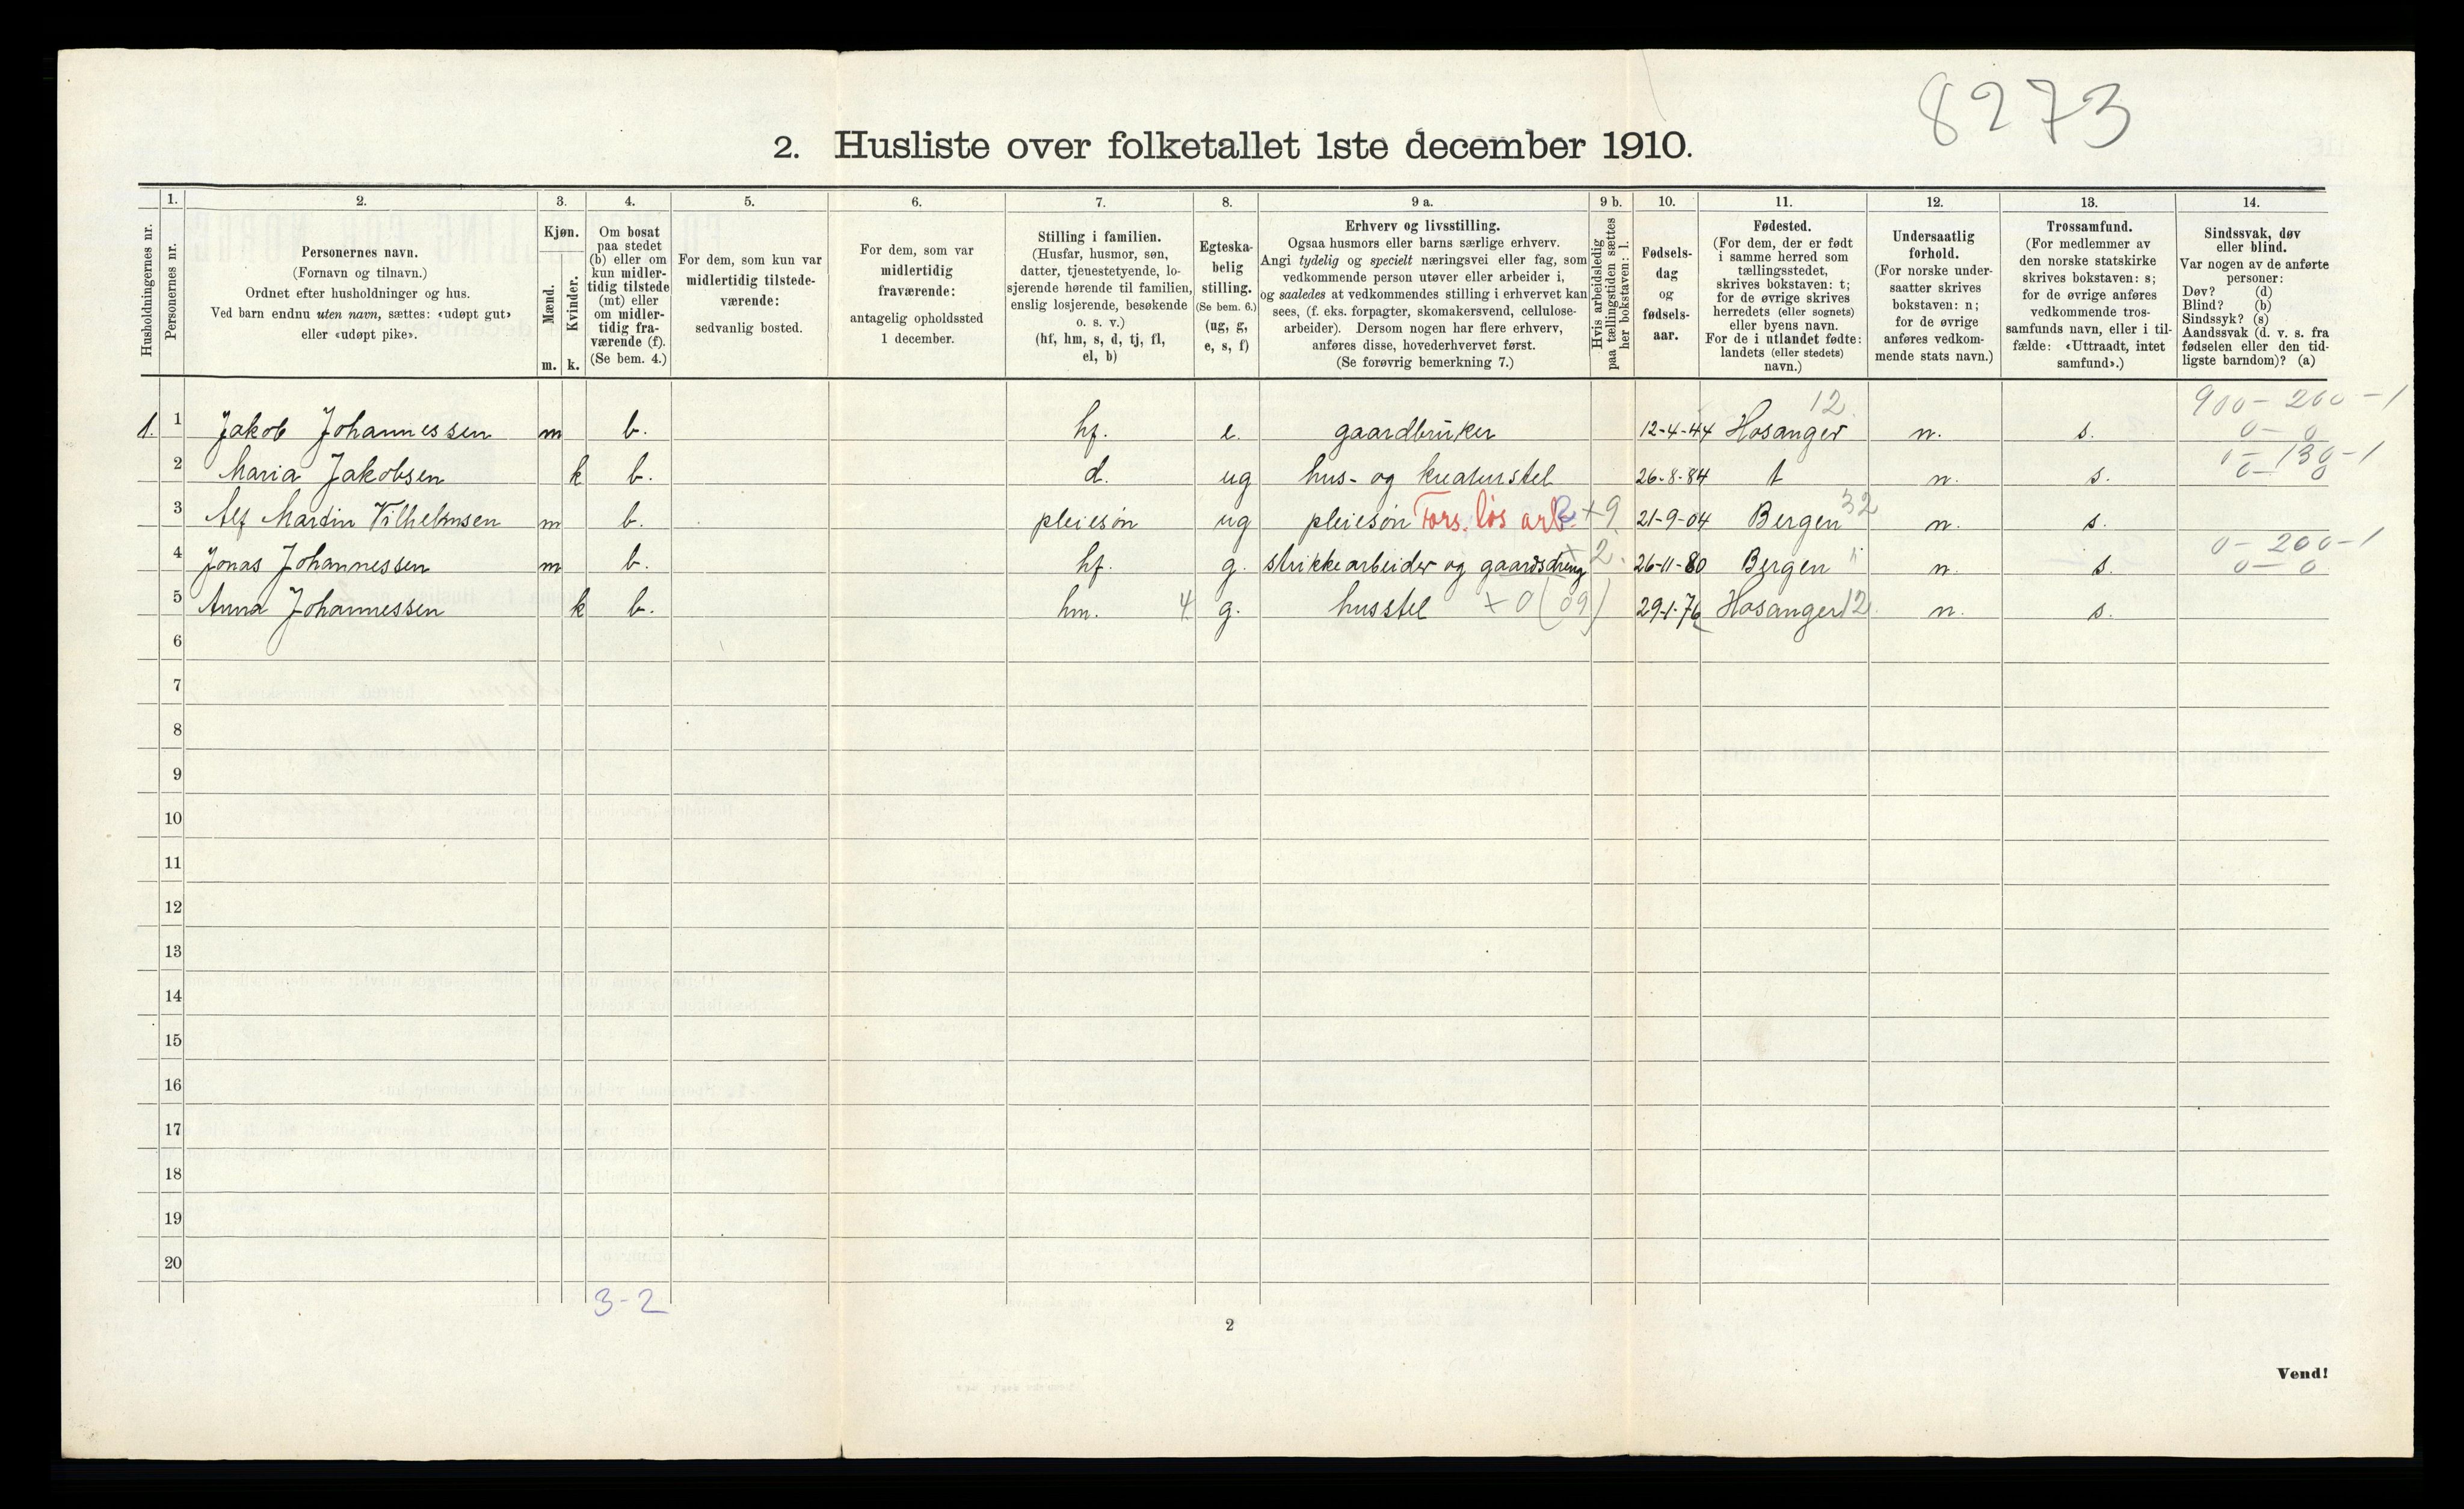 8273
2. Husliste over folketallet 1ste december 1910.
Husholdningernes nr.
1. Personernes nr.
2. Personernes navn.
(Fornavn og tilnavn.)
Ordnet efter husholdninger og hus.
Ved barn endnu uten navn, sættes: «udøpt gut»
eller «udøpt pike».
3. Kjøn.
Mænd. m.
Kvinder. k.
4. Om bosat
paa stedet
(b) eller om
kun midler-
tidig tilstede
(mt) eller
om midler-
tidig fra-
værende (f).
(Se bem. 4.)
5. For dem, som kun var
midlertidig tilstede-
værende:
sedvanlig bosted.
6. For dem, som var
midlertidig
fraværende:
antagelig opholdssted
1 december.
7. Stilling i familien.
(Husfar, husmor, søn,
datter, tjenestetyende, lo-
sjerende hørende til familien,
enslig losjerende, besøkende
o. s. v.)
(hf, hm, s, d, tj, fl,
el, b)
8. Egteska-
belig
stilling.
(Se bem. 6.)
(ug, g,
e, s, f)
9 a. Erhverv og livsstilling.
Ogsaa husmors eller barns særlige erhverv.
Angi tydelig og specielt næringsvei eller fag, som
vedkommende person utøver eller arbeider i,
og saaledes at vedkommendes stilling i erhvervet kan
sees, (f. eks. forpagter, skomakersvend, cellulose-
arbeider). Dersom nogen har flere erhverv,
anføres disse, hovederhvervet først.
(Se forøvrig bemerkning 7.)
9 b. Hvis arbeidsledig
paa tællingstiden sættes
her bokstaven: l.
10. Fødsels-
dag
og
fødsels-
aar.
11. Fødested.
(For dem, der er født
i samme herred som
tællingsstedet,
skrives bokstaven: t;
for de øvrige skrives
herredets (eller sognets)
eller byens navn.
For de i utlandet fødte:
landets (eller stedets)
navn.)
12. Undersaatlig
forhold.
(For norske under-
saatter skrives
bokstaven: n;
for de øvrige
anføres vedkom-
mende stats navn.)
13. Trossamfund.
(For medlemmer av
den norske statskirke
skrives bokstaven: s;
for de øvrige anføres
vedkommende tros-
samfunds navn, eller i til-
fælde: «Uttraadt, intet
samfund».)
14. Sindssvak, døv
eller blind.
Var nogen av de anførte
personer:
Døv? (d)
Blind? (b)
Sindssyk? (s)
Aandssvak (d. v. s. fra
fødselen eller den tid-
ligste barndom)? (a)
12 900 - 200 - 1
1. 1 Jakob Johannessen m b. hf. e. gaardbruker 12-4-44 Hosanger n. s. 0 - 0
0 - 130 - 1
2 Maria Jakobsen k b. d. ug hus- og kreaturstel 26-8-84 t n. s. 0 - 0
3 Alf Martin Vilhelmsen m b. pleiesøn ug pleiesøn Fors. løs arb. +9 21-9-04 Bergen 32 n. s.
0 - 200 - 1
4 Jonas Johannessen m b. hf. g. strikkearbeider og gaardsdreng 2. 26-11-80 Bergen " n. s. 0 - 0
5 Anna Johannessen k b. hm. 4 g. husstel + 0 (09) 29-1-76 Hosanger 12. n. s.
6
7
8
9
10
11
12
13
14
15
16
17
18
19
20
3-2
2
Vend!